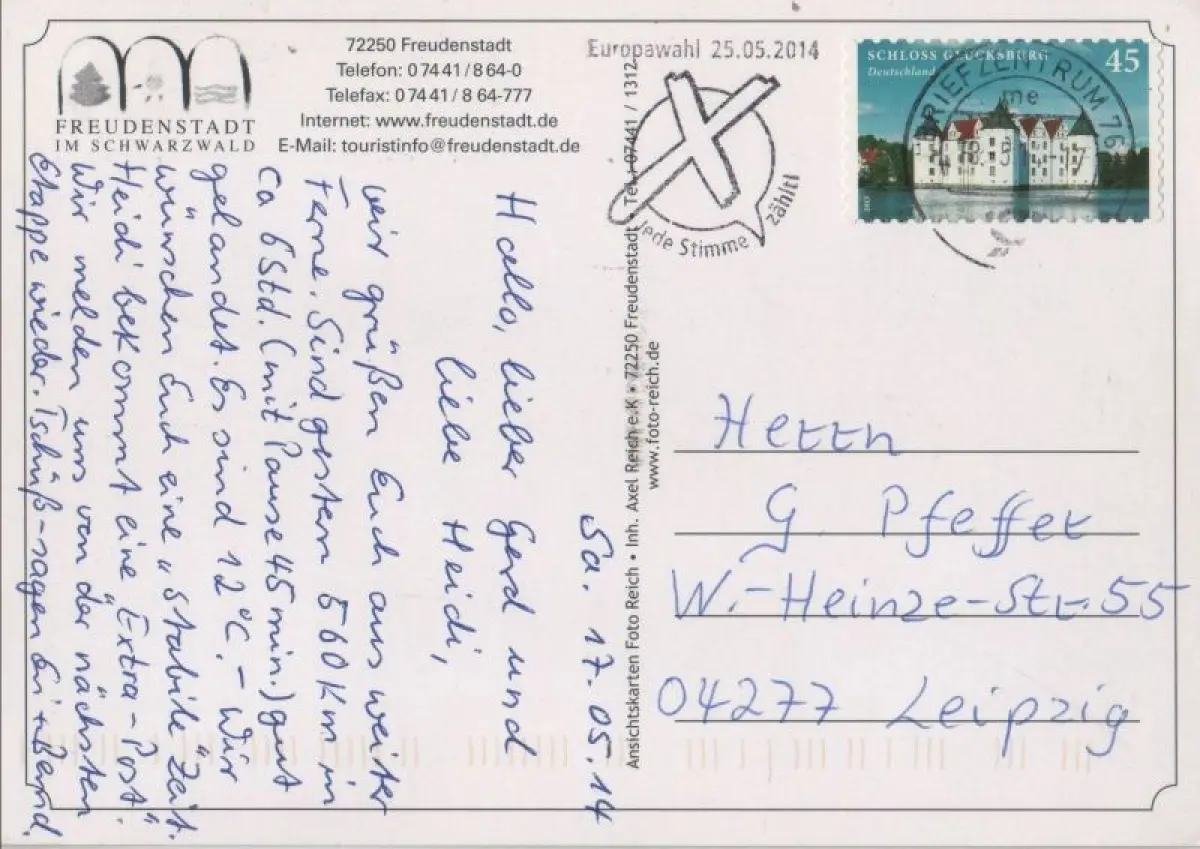 FREUDENSTADT
IM SCHWARZWALD
72250 Freudenstadt
Telefon: 0 74 41 / 8 64-0
Telefax: 0 74 41 / 8 64-777
Internet: www.freudenstadt.de
E-Mail: touristinfo@freudenstadt.de
Europawahl 25.05.2014
Jede Stimme zählt!
SCHLOSS GLÜCKSBURG 45
Deutschland
BRIEFZENTRUM 76
me
Sa. 17.05.14
Hallo, lieber Gerd und
liebe Heidi,
wir grüßen Euch aus weiter
Ferne. Sind gestern 560 km in
ca 6 Std. (mit Pause 45 min.) gut
gelandet. Es sind 12°C. – Wir
wünschen Euch eine „stabile" Zeit.
Heidi bekommt eine „Extra-Post".
Wir melden uns von der nächsten
Etappe wieder. Tschüß-sagen + Bernd.
Ansichtskarten Foto Reich • Inh. Axel Reich e.K • 72250 Freudenstadt • Tel. 07441 / 1312
www.foto-reich.de
Herrn
G. Pfeffer
W.-Heinze-Str. 55
04277 Leipzig